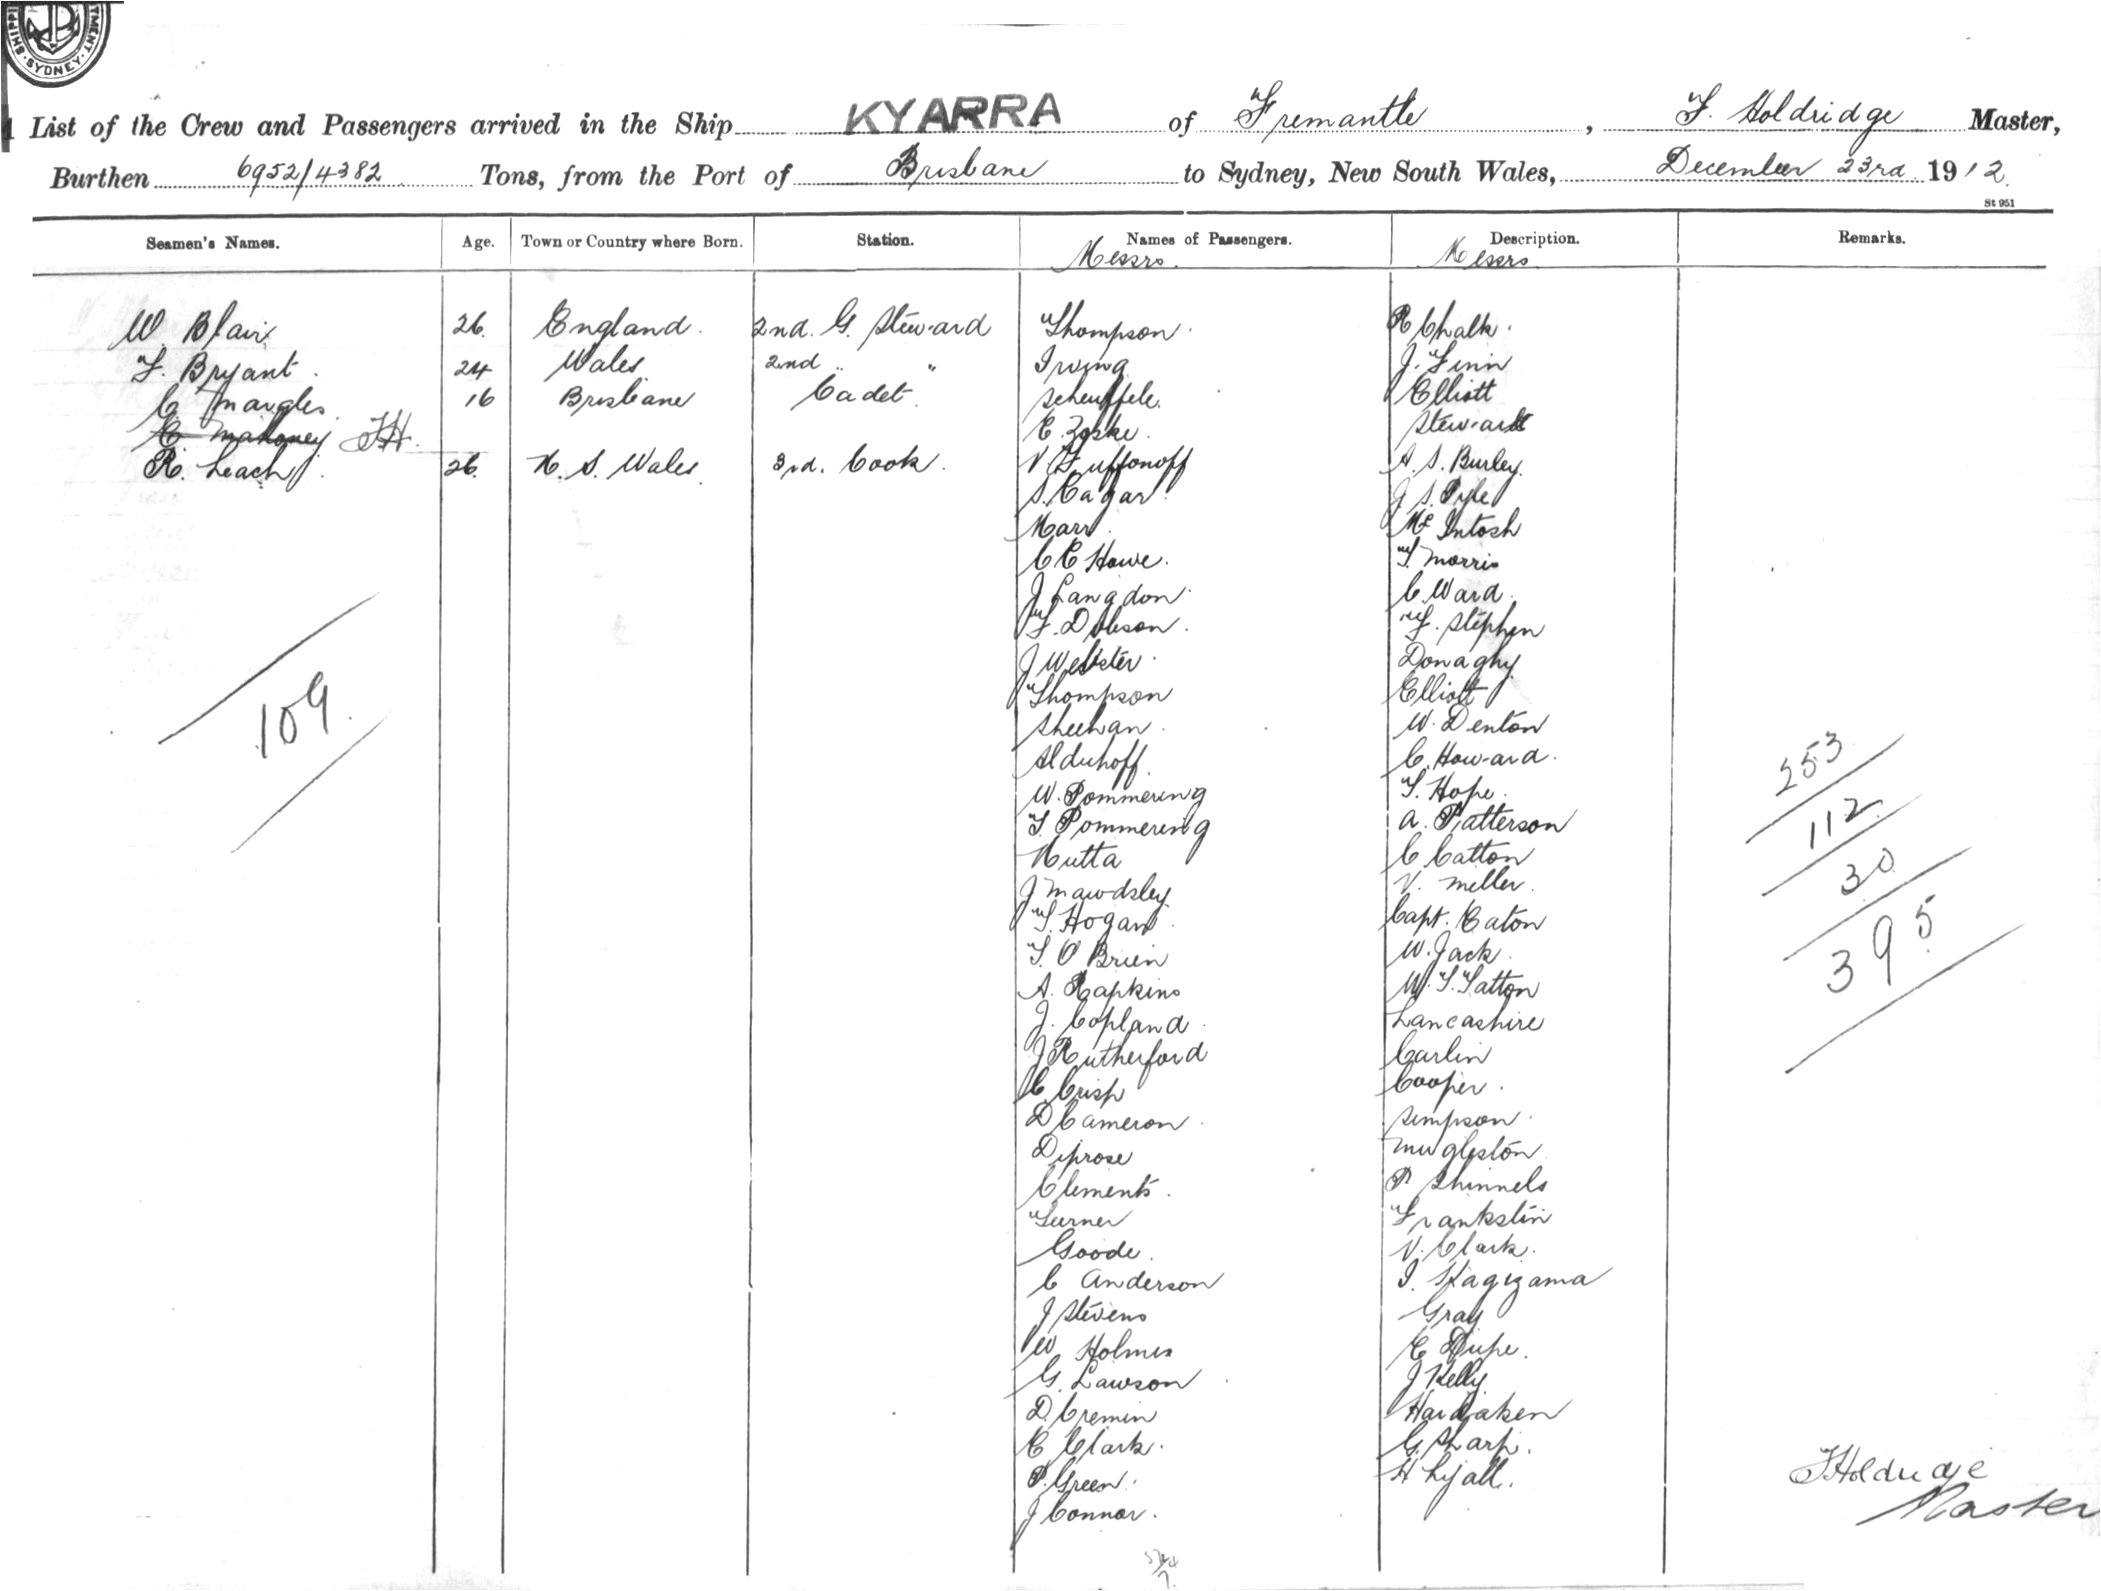 SHIPPI TMENT. SYDNEY.
List of the Crew and Passengers arrived in the Ship KYARRA of Fremantle, F. Holdridge Master,
Burthen 6952/4382 Tons, from the Port of Brisbane to Sydney, New South Wales, December 23rd 1912.
St 951
Seamen's Names. Age. Town or Country where Born. Station. Names of Passengers. Description. Remarks.
Messrs. Messrs
W. Blair 26 England. 2nd. G. Steward Thompson. R Chalk.
F. Bryant. 24 Wales 2nd " " Irving J. Finn
C. Margles. 16 Brisbane Cadet. Scheuffele. Elliott
C. Mahoney FH. E. Zoske. Stewart
R. Leach. 26. N. S. Wales. 3rd. Cook. V. A. S. Burley.
S. Cagar. J S. Pyle
Marr. Mc Intosh
C C Howe. T. Morris
J Langdon. C. Ward.
F. Dobson. F. Stephen
J Webster. Donaghy
Thompson Elliott
Sheehan. W. Denton
Alduhoff. C. Howard.
W. Pommering T. Hope.
T Pommering A. Patterson
Nutta C Catton
J Mawdsley V. Meller.
T. Hogan. Capt. Eaton
T. O Brien W. Jack.
A. Rapkins W. T. Tatton
J. Copland. Lancashire
J Rutherford Carlin
C. Crisp Cooper.
D Cameron. Simpson.
Diprose Mugleston
Clements. P Shinnels
Turner Frankstin
Goode. V. Clark.
C Anderson I. Kagizama
J Stevens Gray
W Holmes E Dupe.
G. Lawson J Kelly
D. Cremin Hardaken
E Clark. G. Sharp.
P. Green. H Lyall.
J Connor.
109.
253
112
30
395
F Holdridge
Master